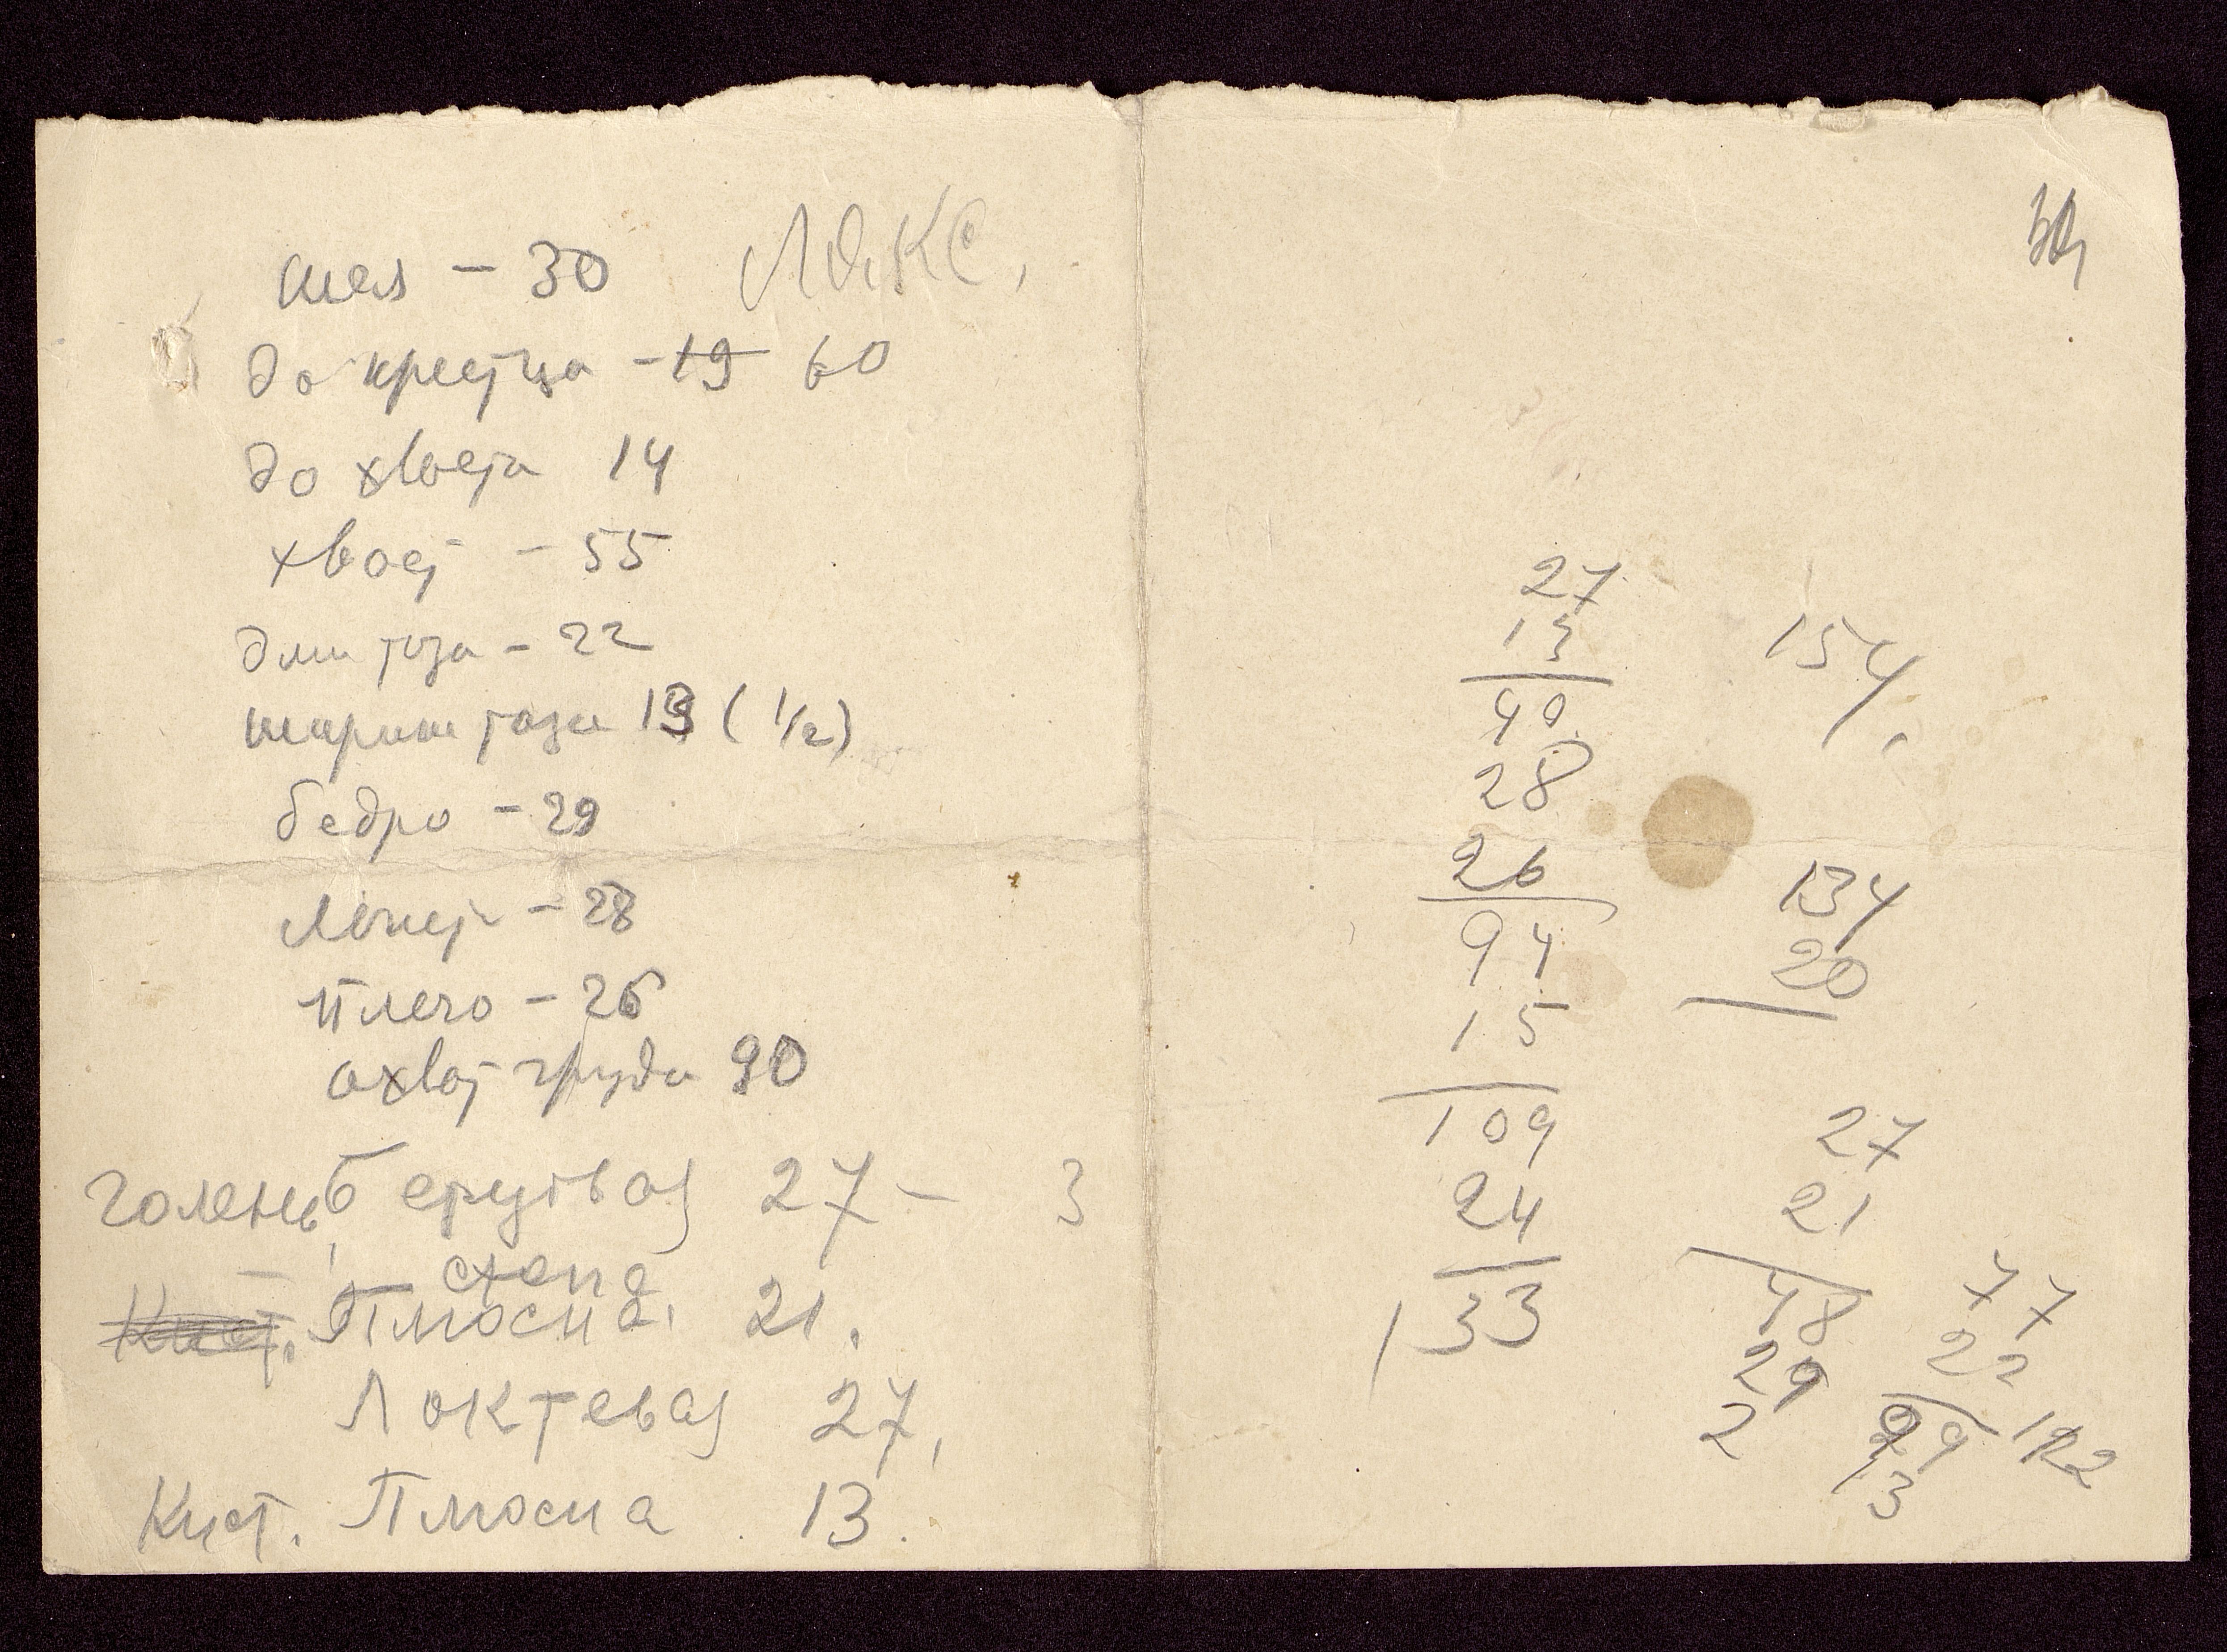 шея - 30
до крестца - 19 60
до хвоста 14
хвост - 55
дли таза - 22
ширин таза 13 (1/2)
бедро - 29
Лопат - 28
Плечо - 26
охват груди 90
Голень, берцовая 27 - 3
стопа
Кист. Плюсна. 21.
Локтевая 27,
Кист. Плюсна 13.
27
13
40
28
26
94
15
109
24
133
154,
134
20
27
21
48
29
2
77
22
99 122
13